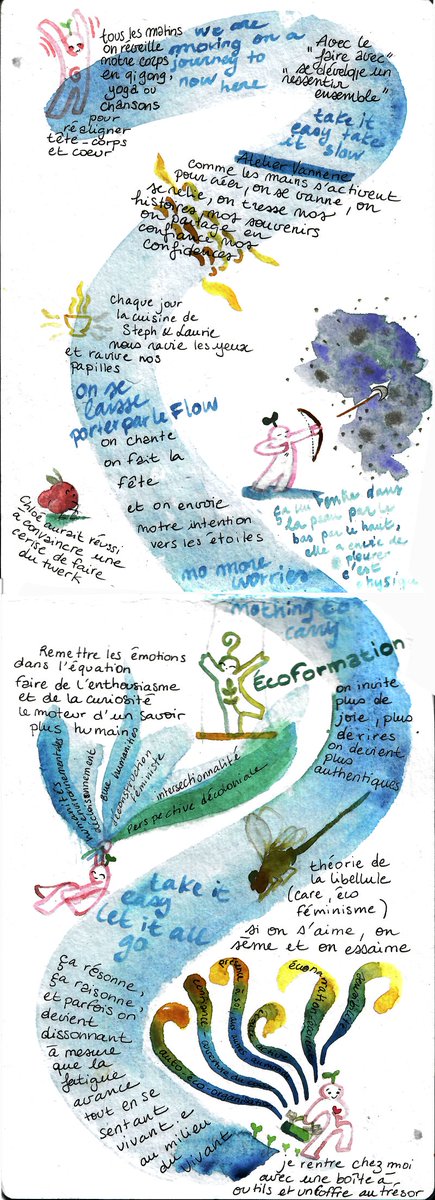 tous les matins
on réveille
notre corps
en qi gong,
yoga ou
chansons
pour
réaligner
tête-corps
et coeur
we are
moving on a
journey to
now
here
"Avec le
"faire avec"
se dévelope un
"ressentir
ensemble"
take it
easy take
it slow
Atelier Vannerie
comme les mains s'activent
pour créer, on se vanne, on
se relie, on tresse nos
histoires, nos souvenirs
on partage en
confiance nos
confidences
chaque jour
la cuisine de
Steph & Laurie
nous ravie les yeux
et ravive nos
papilles
on se
laisse
porter par le Flow
on chante
on fait la
fête
et on envoie
notre intention
vers les étoiles
Chloé aurait réussi
à convaincre une
cerise de faire
du twerk
ça lui rentre dans
la peau par le
bas par le haut,
elle a envie de
pleurer
c'est
physique
no more
worries
nothing to
carry
Remettre les émotions
dans l'équation
faire de l'enthousiasme
et de la curiosité
le moteur d'un savoir
plus humain
ÉcoFormation
on invite
plus de
joie, plus
de rires
on devient
plus
authentiques
humanités environnementales
décloisonnement
aux humanités
déconstruction
féministe
intersectionnalité
Perspective décoloniale
take it
easy
let it all
go
théorie de
la libellule
(care, éco
féminisme)
si on s'aime, on
sème et on essaime
ça résonne,
ça raisonne,
et parfois on
devient
dissonnant
à mesure
que la
fatigue
avance
tout en se
sentant
vivant.e
au milieu
du
vivant
auto-éco-organisation
je rentre chez moi
avec une boîte à
outils et un coffre au trésor